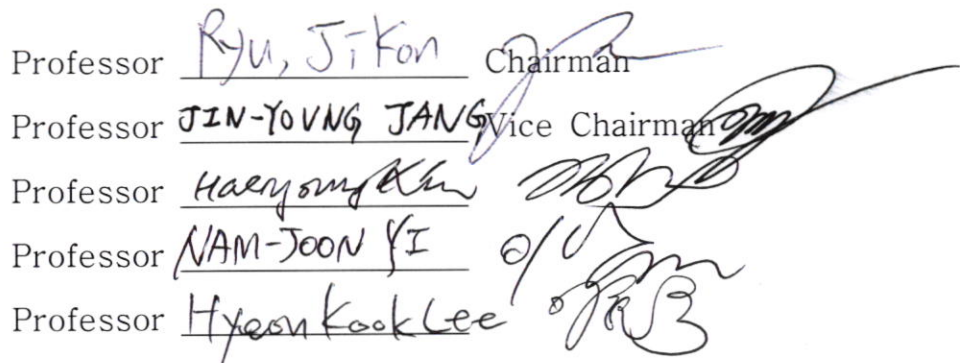 Professor Ryu, JiKon Chairman
Professor JIN-YOUNG JANG Vice Chairman
Professor Haeryoung Kim
Professor NAM-JOON YI
Professor Hyeon Kook Lee